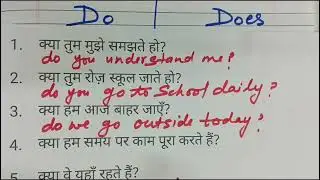 Do | Does
1. क्या तुम मुझे समझते हो?
do you understand me?
2. क्या तुम रोज़ स्कूल जाते हो?
do you go to School daily?
3. क्या हम आज बाहर जाएँ?
do we go outside today?
4. क्या हम समय पर काम पूरा करते हैं?
5. क्या वे यहाँ रहते हैं?